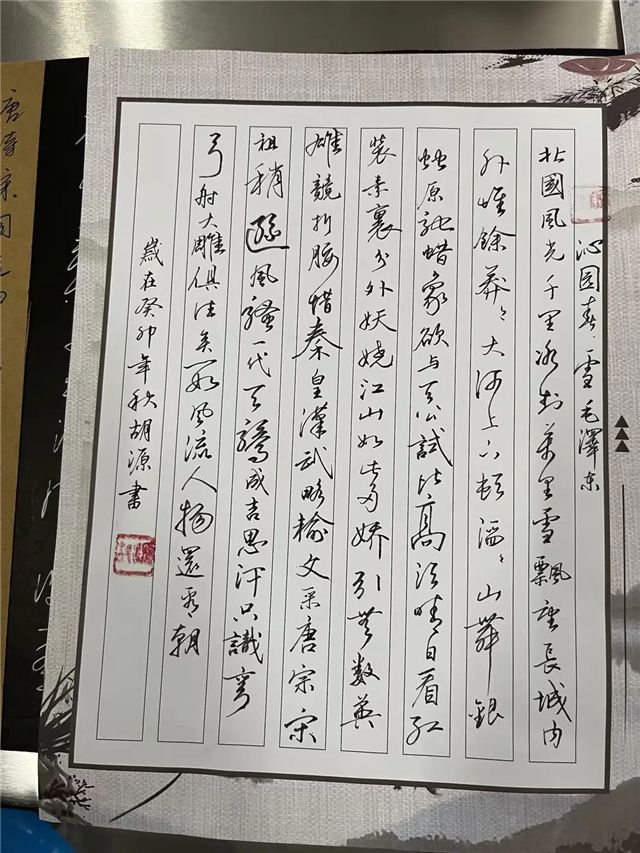 沁园春·雪 毛澤东
北國風光千里冰封萬里雪飄望長城内
外惟餘莽〻大河上下頓滔〻山舞銀
蛇原馳蜡象欲与天公試比高須晴日看红
装素裹分外妖娆江山如此多娇引無数英
雄競折腰惜秦皇漢武略输文采唐宗宋
祖稍遜風騷一代天驕成吉思汗只識弯
弓射大雕俱往矣数風流人物還看今朝
歲在癸卯年秋胡源書
唐詩宋